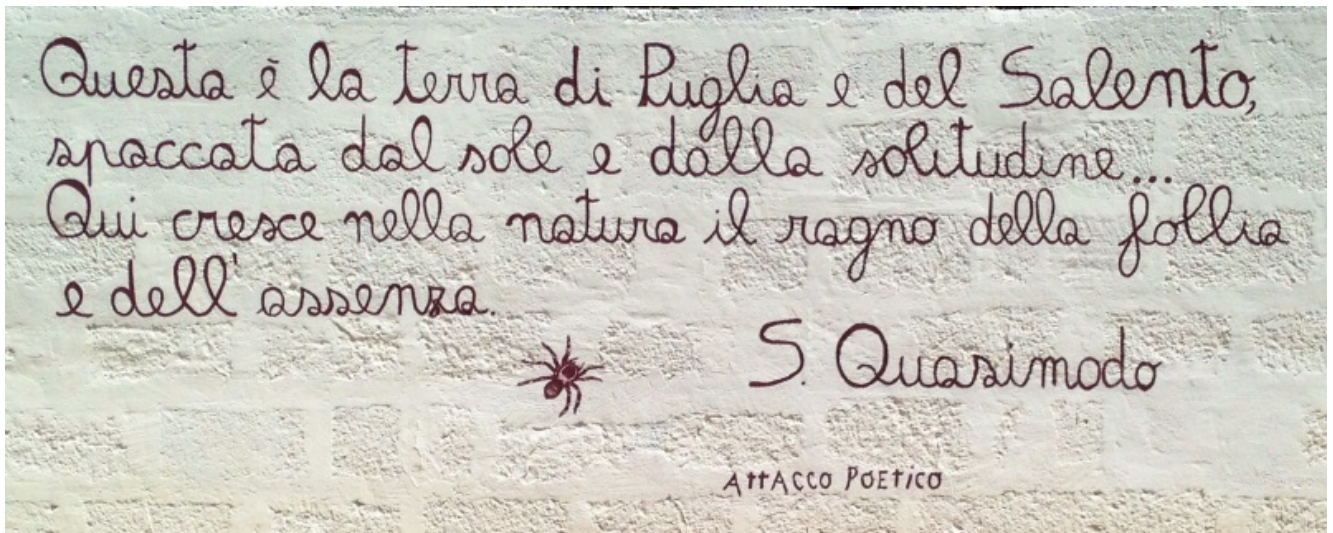 Questa è la terra di Puglia e del Salento,
spaccata dal sole e dalla solitudine...
Qui cresce nella natura il ragno della follia
e dell'assenza.
S. Quasimodo
ATTACCO POETICO